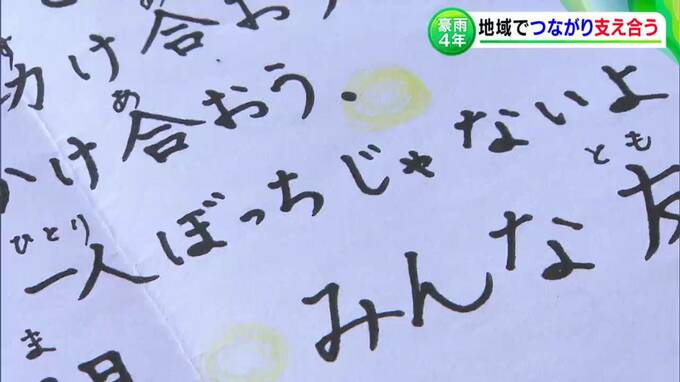 豪雨
4年
地域でつながり支え合う
け合おう
あ
け合おう
ひとり
一人ぼっちじゃないよ
とも
みんな友
ま